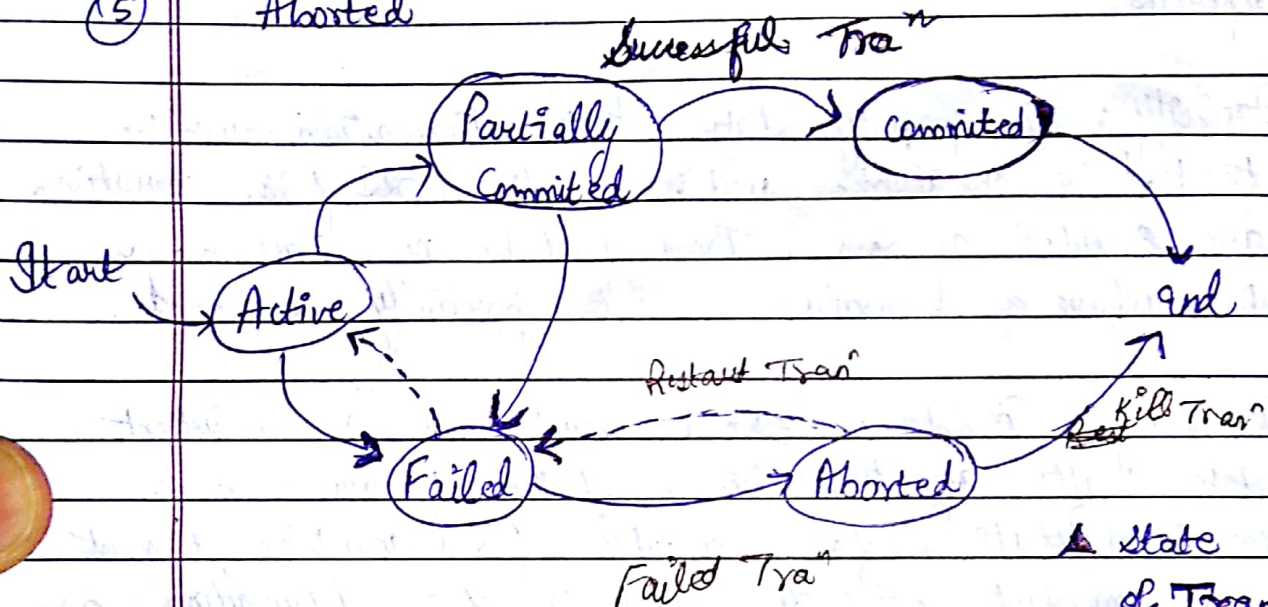 (5) Aborted
Successful Traⁿ
Partially
Commited
commited
Start
Active
end
Restart Tranⁿ
Kill Tranⁿ
Failed
Aborted
State
Failed Traⁿ
of